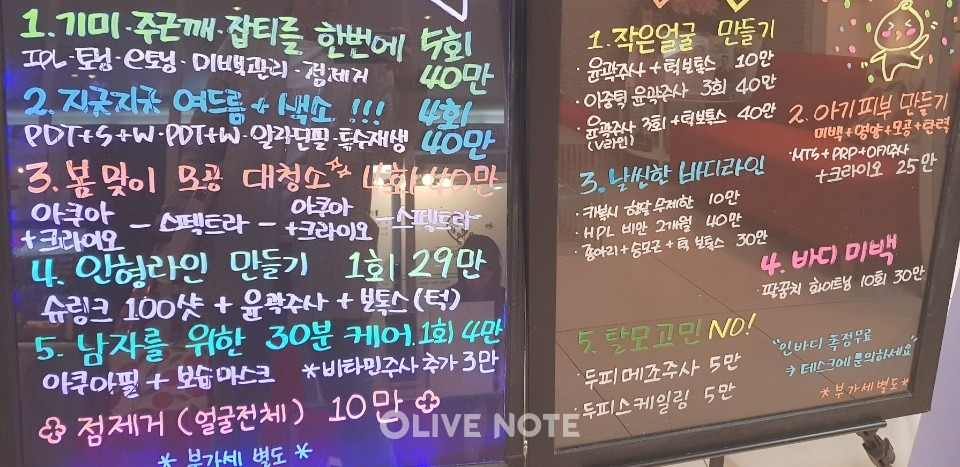 1. 기미·주근깨·잡티를 한번에 5회
IPL·토닝·e토닝·미백관리·점제거 40만
2. 지긋지긋 여드름+색소 !!! 4회
PDT+S+W·PDT+W·알라딘필·특수재생 40만
3. 봄맞이 모공 대청소 4회 40만
아쿠아+크라이오 - 스펙트라 - 아쿠아+크라이오 - 스펙트라
4. 인형라인 만들기 1회 29만
슈링크 100샷 + 윤곽주사 + 보톡스 (턱)
5. 남자를 위한 30분 케어. 1회 4만
아쿠아필 + 보습마스크 *비타민주사 추가 3만
점제거 (얼굴전체) 10만
* 부가세 별도 *
1. 작은얼굴 만들기
·윤곽주사+턱보톡스 10만
·이중턱 윤곽주사 3회 40만
·윤곽주사 3회+턱보톡스 40만
(V라인)
2. 아기피부 만들기
미백+영양+모공+탄력
·MTS+PRP+아기주사
+크라이오 25만
3. 날씬한 바디라인
·카복시 한달 무제한 10만
·HPL 비만 2개월 40만
·종아리+승모근+턱 보톡스 30만
4. 바디 미백
·팔꿈치 화이트닝 10회 30만
5. 탈모고민 NO!
·두피메조주사 5만
·두피스케일링 5만
"인바디 측정무료
→ 데스크에 문의하세요"
*부가세별도*
OLIVE NOTE